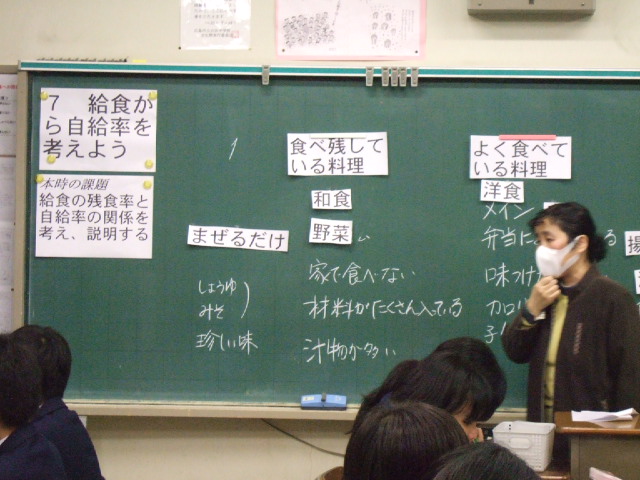 7 給食か
ら自給率を
考えよう
本時の課題
給食の残食率と
自給率の関係を
考え、説明する
まぜるだけ
しょうゆ
みそ
珍しい味
食べ残して
いる料理
和食
野菜
家で食べない
材料がたくさん入っている
汁物が多い
よく食べて
いる料理
洋食
メイン
弁当に
味つけ
カロリ